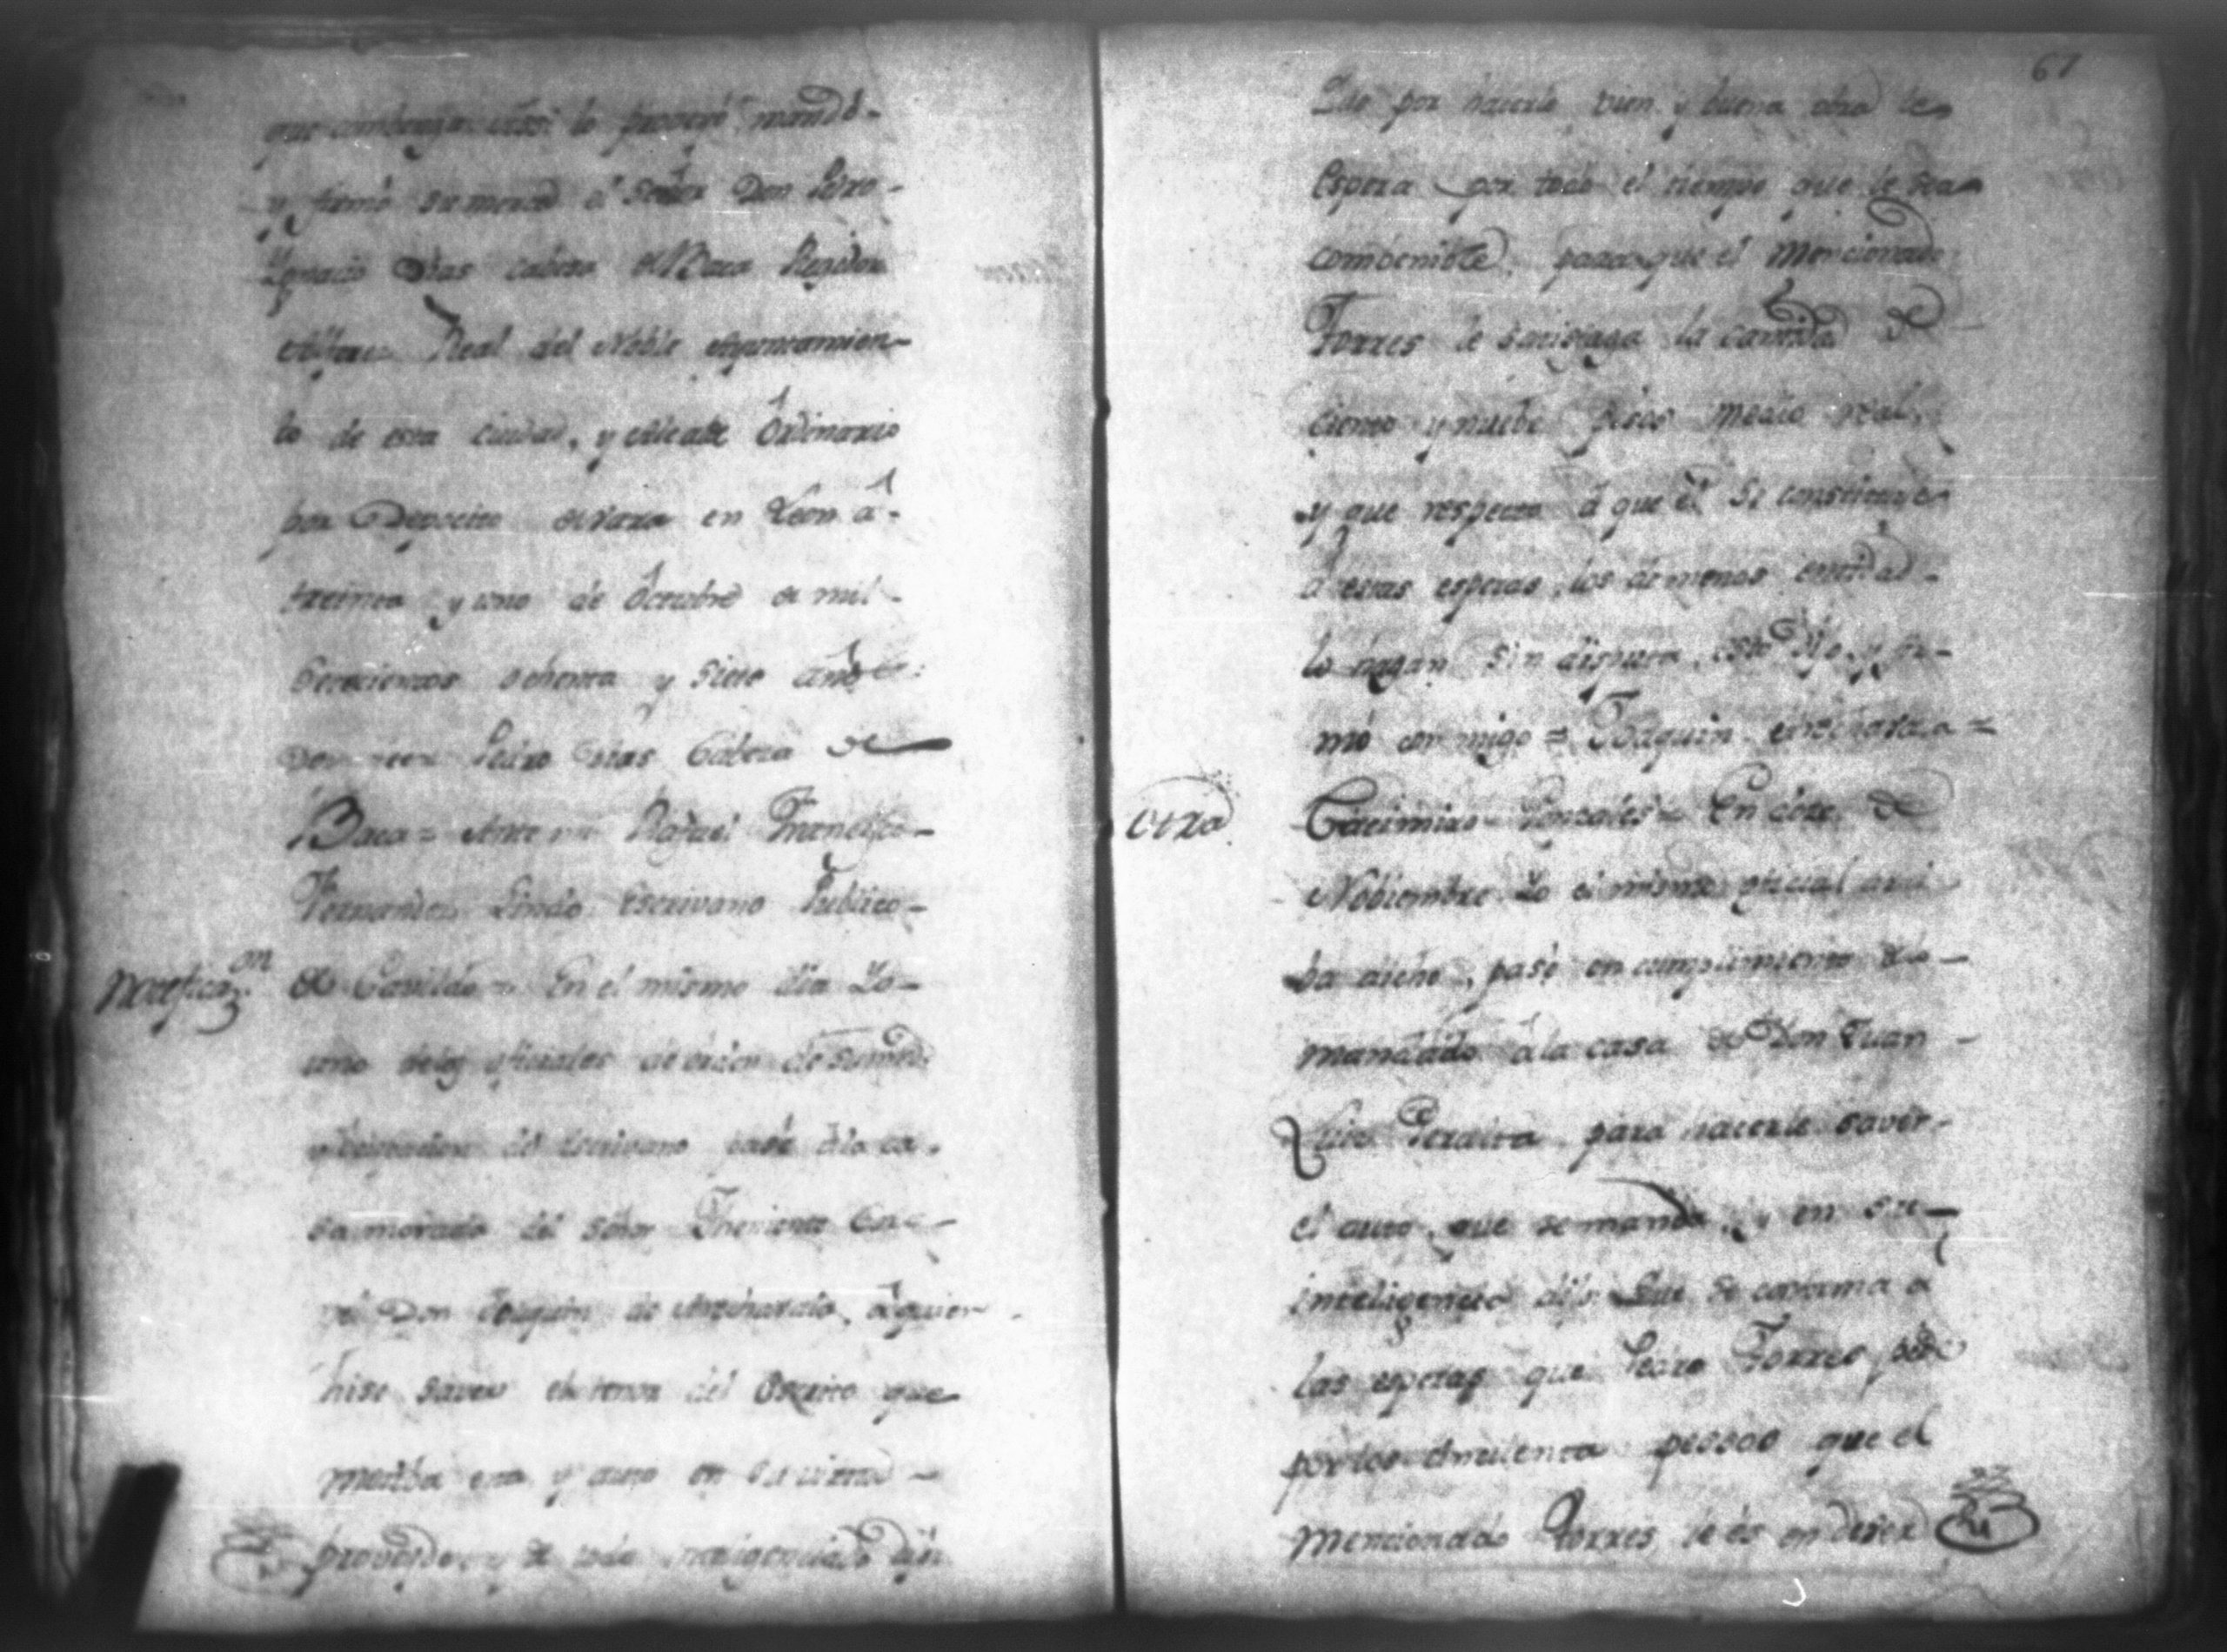 que combenga: assi lo proveyó, mandó
y firmó su merced el Señor Don Pedro
Ygnacio Dias cabeza de Baca Regidor
Alferes Real del Noble Ayuntamien-
to de esta Ciudad, y Alcalde Ordinario
por Deposito de Vara en Leon á
treinta y uno de Octubre de mil
setecientos ochenta y siete años
Pedro Dias Cabeza de
Baca = Ante mi Rafael Francisco
Fernandez Lindo Escrivano Publico
Notificaz.on
de Cavildo = En el mismo dia Yo
uno de los oficiales de orden de su md.
del Escrivano pasé á la ca-
sa morada del Señor Theniente Coro-
nel Don Joaquin de Arechavala, á quien
hise saver el tenor del Escrito que
y auto en su virtud
proveydo, y de todo inteligenciado dijo
67
Que por hacerle bien y buena obra le
espera por todo el tiempo que le sea
combenible, para que el Mencionado
Torres le satisfaga la cantidad de
ciento y nuebe pesos medio real,
y que respecto á que él se constituye
á estas esperas, los de menos cantidad
lo hagan sin disputa, esto Dijo, y fir-
mó conmigo = Joaquin Arechavala =
otra
Casimiro Gonzales = En doze de
Nobiembre Yo el mismo oficial arri
ba dicho, pasé en cumplimiento de lo
mandado á la casa de Don Juan
Luis Peralta para hacerle saver
el auto, que se manda, y en su
inteligencia dijo: Que se conforma á
las esperas que Pedro Torres pide
por los cinquenta pessos que el
mencionado Torres le és en deber